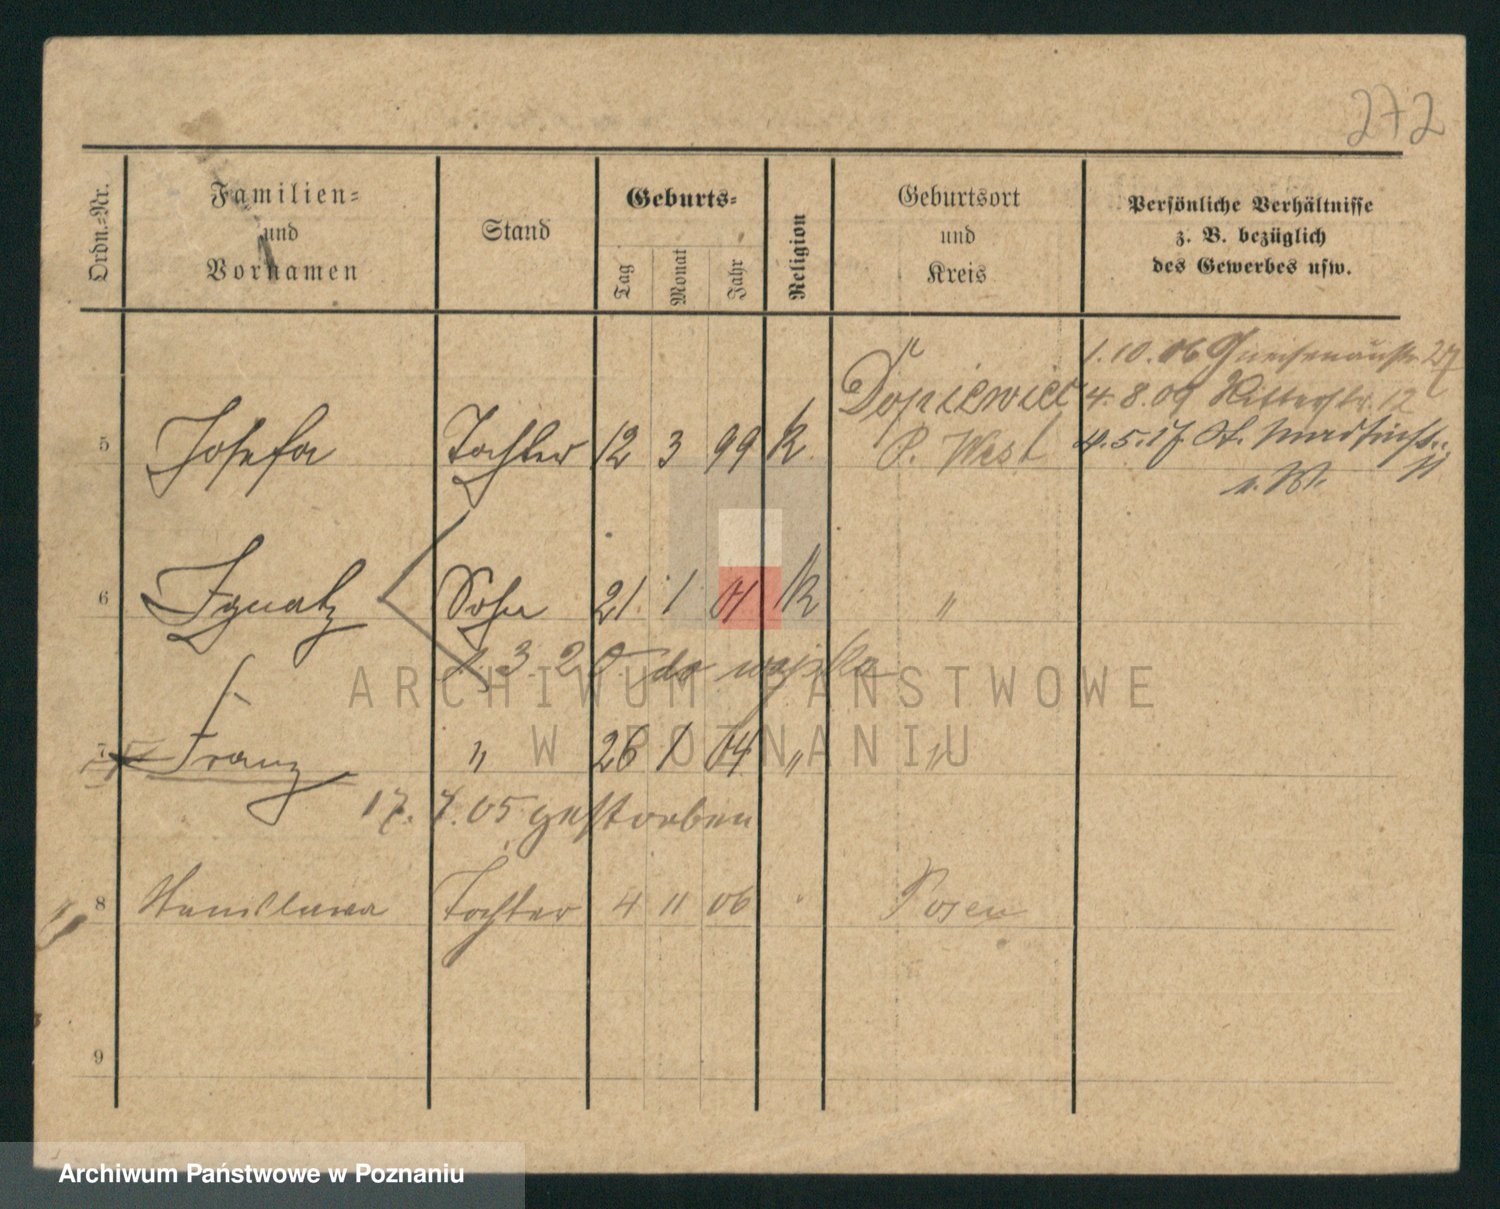 272
Ordn.-Nr.
Familien-
und
Vornamen
Stand
Geburts-
Tag
Monat
Jahr
Religion
Geburtsort
und
Kreis
Persönliche Verhältnisse
z. B. bezüglich
des Gewerbes usw.
1.10.06 Gneisenaustr 27
Dopiewiec 4.8.09 Ritterstr. 12
5 Josefa Tochter 12 3 99 k P. West 4.5.17. St.
6 Ignatz Sohn 21 1 01 k "
1 3 20 do wojska
7 Franz " 26 1 04 " "
17. 7. 05 gestorben
8 Stanislawa Tochter 4 11 06 " Posen
9
ARCHIWUM PAŃSTWOWE
W POZNANIU
Archiwum Państwowe w Poznaniu